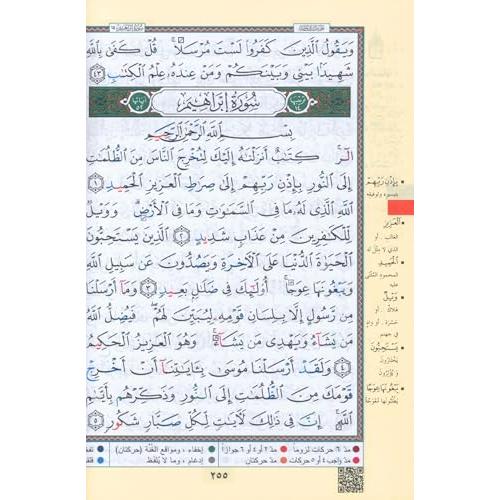 وَيَقُولُ الَّذِينَ كَفَرُوا لَسْتَ مُرْسَلًا ۚ قُلْ كَفَىٰ بِاللَّهِ
شَهِيدًا بَيْنِي وَبَيْنَكُمْ وَمَنْ عِندَهُ عِلْمُ الْكِتَابِ ٤٣
سُورَةُ إِبْرَاهِيمَ
بِسْمِ اللَّهِ الرَّحْمَٰنِ الرَّحِيمِ
الٓر ۚ كِتَابٌ أَنزَلْنَاهُ إِلَيْكَ لِتُخْرِجَ النَّاسَ مِنَ الظُّلُمَاتِ
إِلَى النُّورِ بِإِذْنِ رَبِّهِمْ إِلَىٰ صِرَاطِ الْعَزِيزِ الْحَمِيدِ ١
اللَّهِ الَّذِي لَهُ مَا فِي السَّمَاوَاتِ وَمَا فِي الْأَرْضِ ۗ وَوَيْلٌ
لِّلْكَافِرِينَ مِنْ عَذَابٍ شَدِيدٍ ٢ الَّذِينَ يَسْتَحِبُّونَ
الْحَيَاةَ الدُّنْيَا عَلَى الْآخِرَةِ وَيَصُدُّونَ عَن سَبِيلِ اللَّهِ
وَيَبْغُونَهَا عِوَجًا ۚ أُولَٰئِكَ فِي ضَلَالٍ بَعِيدٍ ٣ وَمَا أَرْسَلْنَا
مِن رَّسُولٍ إِلَّا بِلِسَانِ قَوْمِهِ لِيُبَيِّنَ لَهُمْ ۖ فَيُضِلُّ اللَّهُ
مَن يَشَاءُ وَيَهْدِي مَن يَشَاءُ ۚ وَهُوَ الْعَزِيزُ الْحَكِيمُ
٤ وَلَقَدْ أَرْسَلْنَا مُوسَىٰ بِآيَاتِنَا أَنْ أَخْرِجْ
قَوْمَكَ مِنَ الظُّلُمَاتِ إِلَى النُّورِ وَذَكِّرْهُم بِأَيَّامِ
اللَّهِ ۚ إِنَّ فِي ذَٰلِكَ لَآيَاتٍ لِّكُلِّ صَبَّارٍ شَكُورٍ ٥
بِإِذْنِ رَبِّهِمْ
بتيسيره وتوفيقه
الْعَزِيزِ
الغالب . أو
الذي لا مثل له
الْحَمِيدِ
المحمود المثنى
عليه
وَيْلٌ
هلاك . أو
حسرة . أو وادٍ
في جهنم
يَسْتَحِبُّونَ
يختارون
ويؤثرون
يَبْغُونَهَا عِوَجًا
يطلبونها معوجة
مدّ ٦ حركات لزوماً
مدّ ٢ أو ٤ أو ٦ جوازاً
إخفاء، ومواقع الغنّة (حركتان)
مدّ واجب ٤ أو ٥ حركات
مدّ حركتان
إدغام، وما لا يُلفَظ
٢٥٥